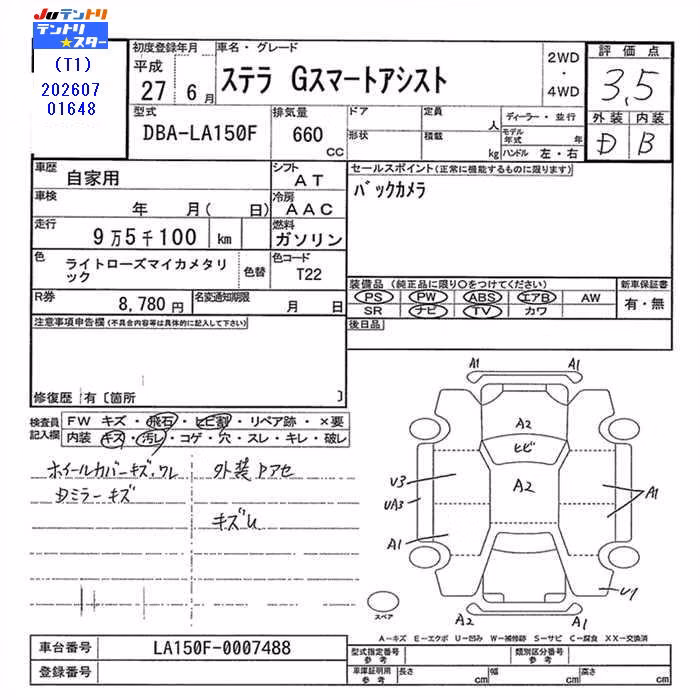 Juテントリ
テントリ★スター
(T1)
202607
01648
初度登録年月
平成
27 6 月
車名・グレード
ステラ Gスマートアシスト
2WD
・
4WD
評価点
3,5
外装 内装
D B
型式
DBA-LA150F
排気量
660
CC
ドア
形状
定員
人
積載
kg
ディーラー・並行
モデル年式
年
ハンドル 左・右
車歴
自家用
シフト
AT
車検
年 月( 日)
冷房
AAC
走行
9万5千100 km
燃料
ガソリン
色
ライトローズマイカメタリック
色替
色コード
T22
R券
8,780 円
名変通知期限
月 日
セールスポイント(正常に機能するものに限ります)
バックカメラ
装備品 (純正品に限り〇をつけてください)
新車保証書
PS PW ABS エアB AW
SR ナビ TV カワ
有・無
後日品
注意事項申告欄(不具合内容等は具体的に記入して下さい)
修復歴 有〔箇所 〕
検査員
記入欄
FW キズ・飛石・ヒビ割・リペア跡・×要
内装・キズ・汚レ・コゲ・穴・スレ・キレ・破レ
ホイールカバーキズ,ワレ
外装アセ
Dミラーキズ
キズU
A1 A1
A2
ヒビ
U3
A2
UA3
A1
A1
U1
A2 A1
スペア
A-キズ E-エクボ U-凹み W-補修跡 S-サビ C-腐食 XX-交換済
車台番号
LA150F-0007488
登録番号
型式指定番号
参考
類別区分番号
参考
車庫証明用
参考
長さ cm 幅 cm 高さ cm